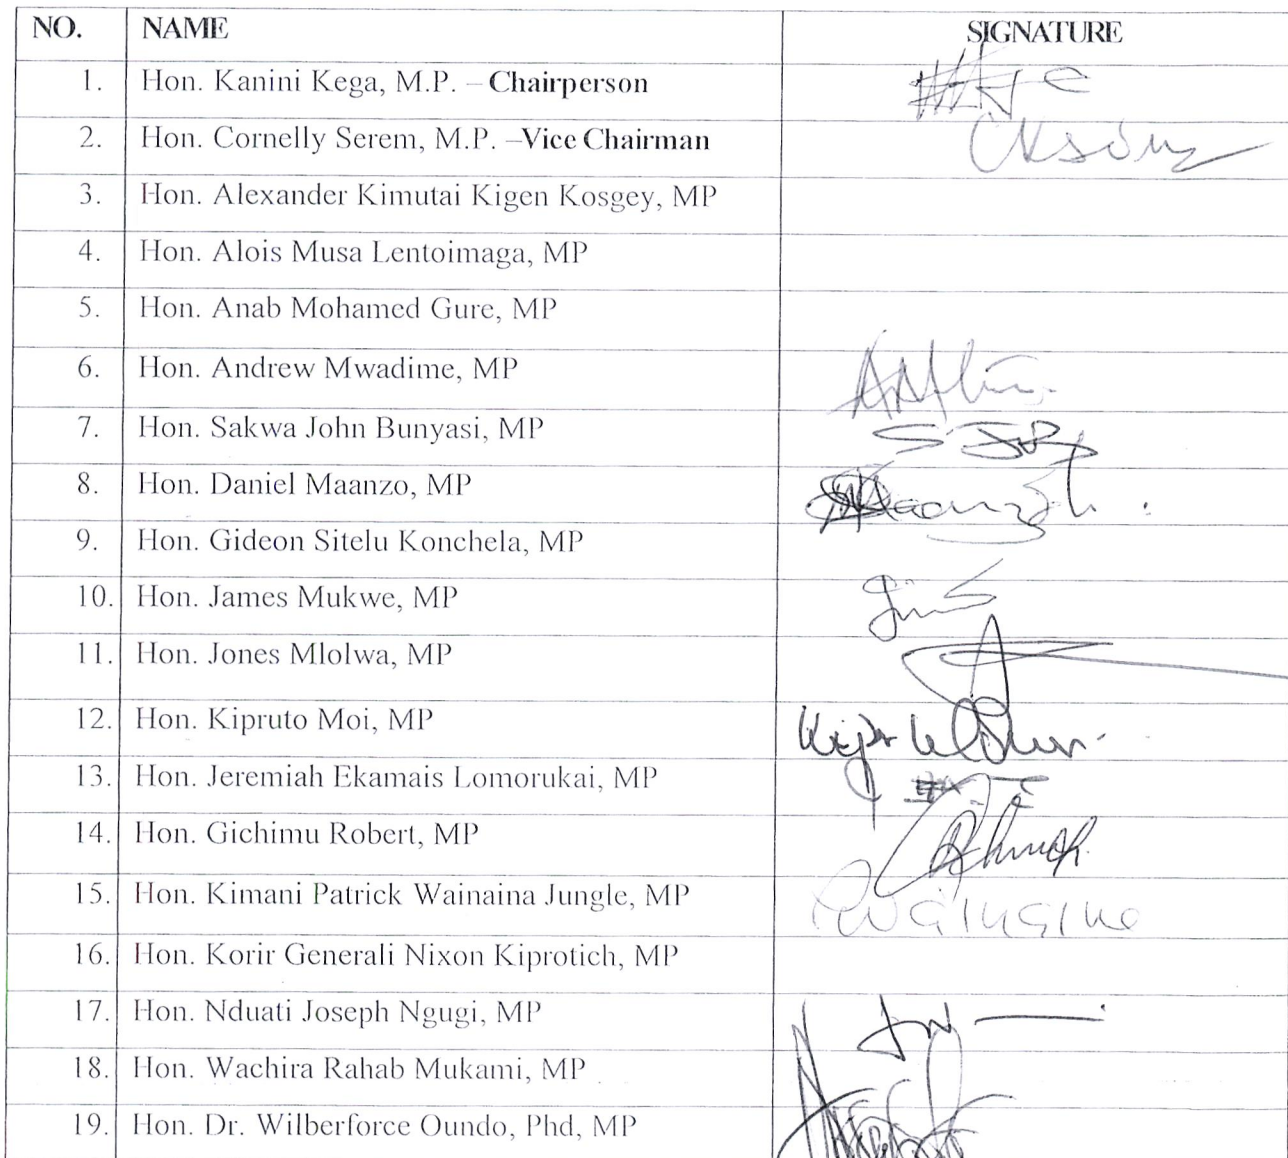 NO. NAME SIGNATURE
1. Hon. Kanini Kega, M.P. – Chairperson
2. Hon. Cornelly Serem, M.P. –Vice Chairman
3. Hon. Alexander Kimutai Kigen Kosgey, MP
4. Hon. Alois Musa Lentoimaga, MP
5. Hon. Anab Mohamed Gure, MP
6. Hon. Andrew Mwadime, MP
7. Hon. Sakwa John Bunyasi, MP
8. Hon. Daniel Maanzo, MP
9. Hon. Gideon Sitelu Konchela, MP
10. Hon. James Mukwe, MP
11. Hon. Jones Mlolwa, MP
12. Hon. Kipruto Moi, MP
13. Hon. Jeremiah Ekamais Lomorukai, MP
14. Hon. Gichimu Robert, MP
15. Hon. Kimani Patrick Wainaina Jungle, MP
16. Hon. Korir Generali Nixon Kiprotich, MP
17. Hon. Nduati Joseph Ngugi, MP
18. Hon. Wachira Rahab Mukami, MP
19. Hon. Dr. Wilberforce Oundo, Phd, MP